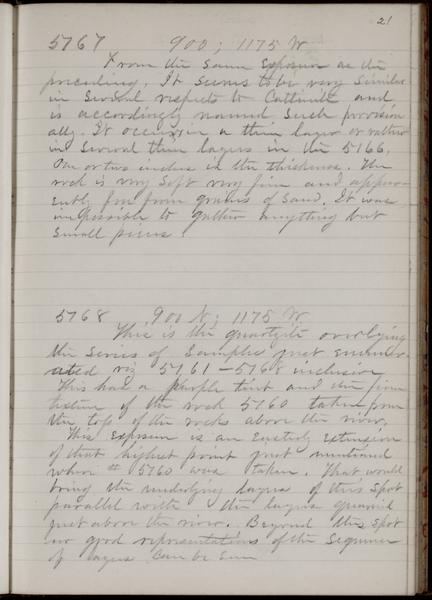 21
5767 900; 1175 W
From the same exposure as the
preceding. It seems to be very similar
in several respects to Catlinite and
is accordingly named such provision
ally. It occurs in a thin layer or rather
in several thin layers in the 5766,
one or two inches in the thickness. The
rock is very soft very fine and appar
ently free from grains of sand. It was
impossible to gather anything but
small pieces.
5768 900 N; 1175 W
This is the quartzite overlying
the series of samples just enumer
ated viz 5761-5768 inclusive
This has a purple tint and the fine
texture of the rock 5760 taken from
the top of the rocks above the river.
This exposure is an easterly extension
of that highest point just mentioned
where # 5760 was taken. That would
bring the underlying layers of this spot
parallel with the layers
just above the river. Beyond this spot
no good representations of the sequence
of layers can be seen